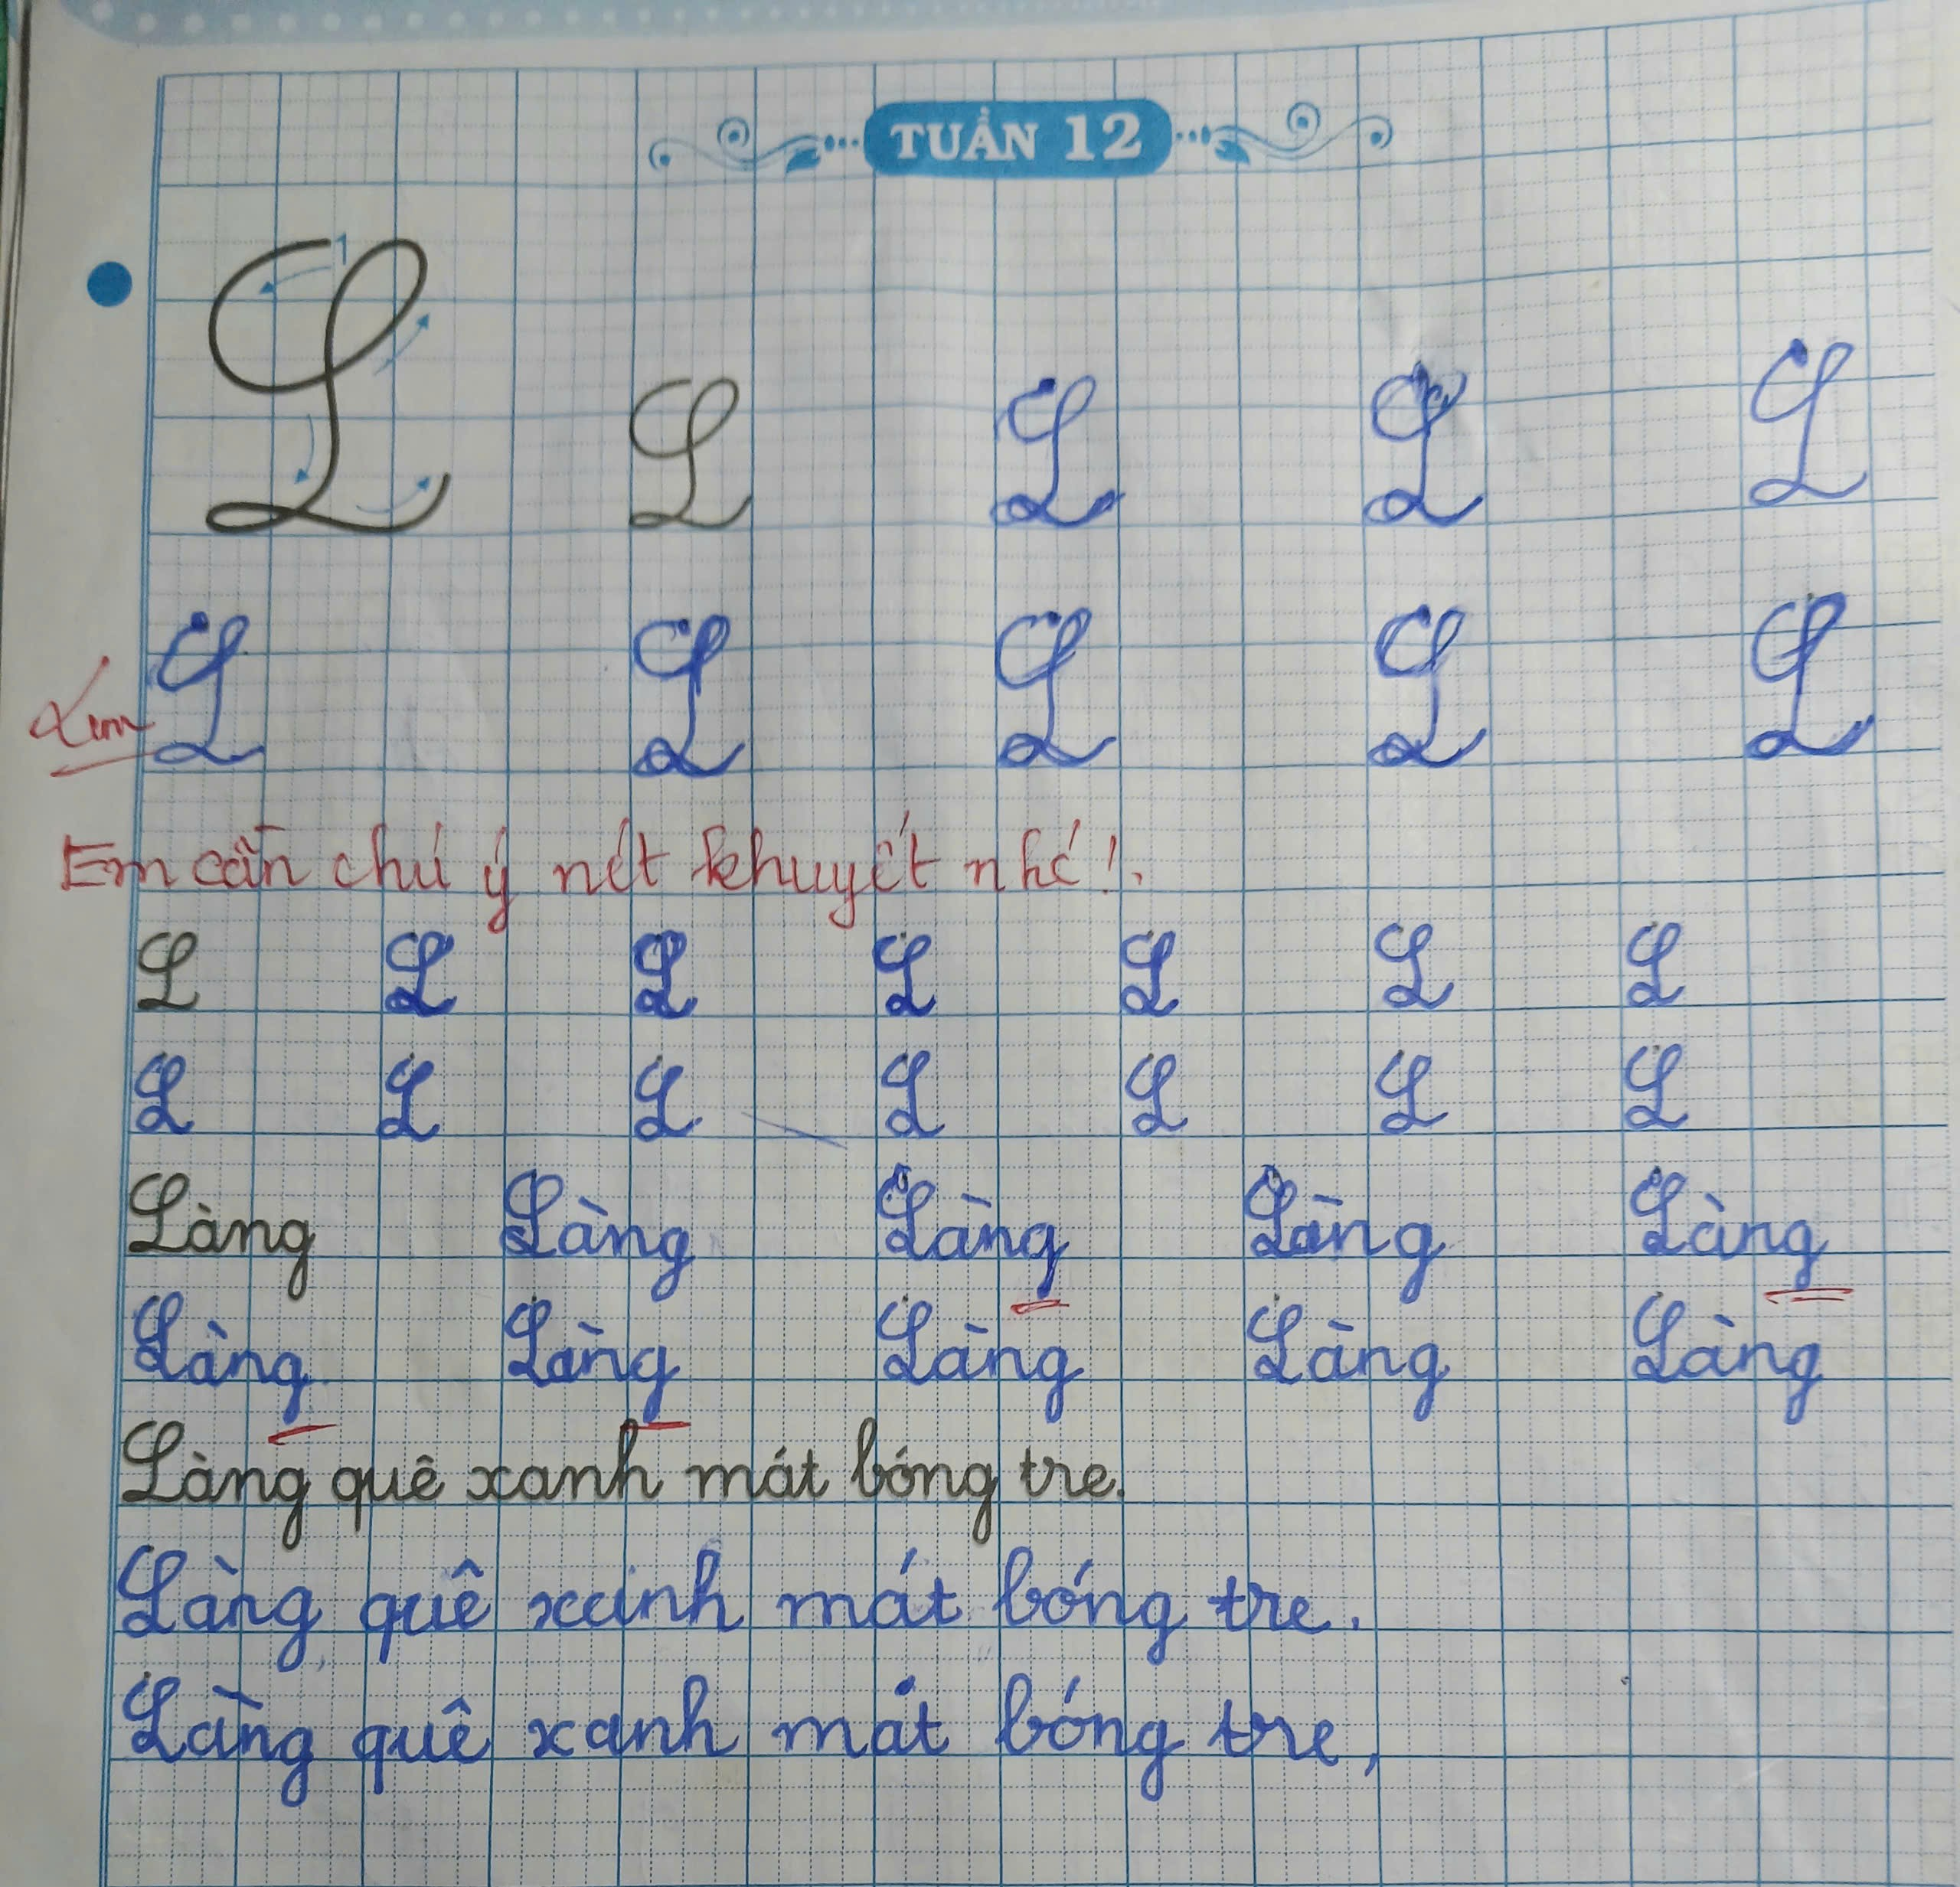 TUẦN 12
1
L L L L L
L L L L L
Em cần chú ý nét khuyết nhé!.
L L L L L L L
L L L L L L L
Làng Làng Làng Làng Làng
Làng Làng Làng Làng Làng
Làng quê xanh mát bóng tre.
Làng quê xanh mát bóng tre.
Làng quê xanh mát bóng tre,